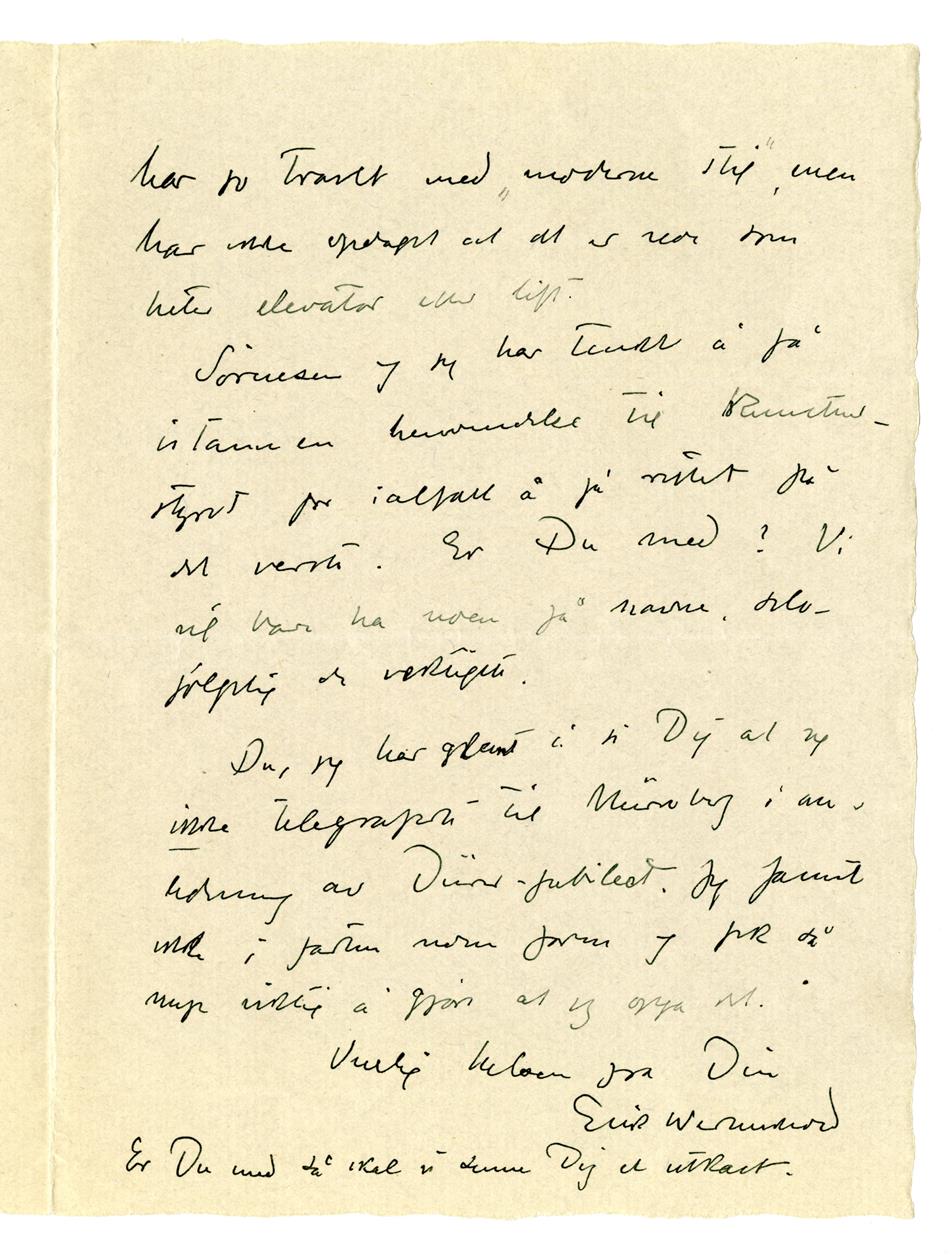 har jo travlt med „moderne stil", men
har ikke opdaget at det er noe som
heter elevator eller lift.
Sørensen og jeg har tenkt å få
istann en henvendelse til Kunstner-
styret for ialfall å få rettet på
det verste. Er Du med? Vi
vil bare ha noen få navne, selv-
følgelig de viktigste.
Du, jeg har glemt å si Dig at jeg
ikke telegraferte til Nürnberg i an-
ledning av Dürer-jubileet. Jeg fannt
ikke i farten noen form og fik så
mye viktig å gjøre at jeg opga det.
Venlig hilsen fra Din
Erik Werenskiold
Er Du med så skal vi sende Dig et utkast.